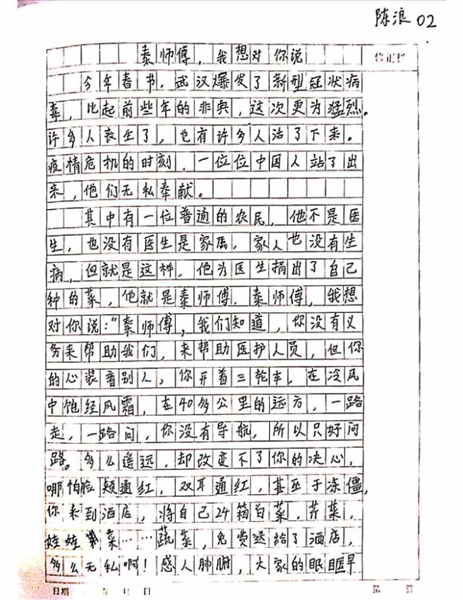 陈浪 02
秦师傅，我想对你说
修正栏
今年春节，武汉爆发了新型冠状病
毒，比起前些年的非典，这次更为猛烈。
许多人丧生了，也有许多人活了下来。
疫情危机的时刻，一位位中国人站了出
来，他们无私奉献。
其中有一位普通的农民，他不是医
生，也没有医生是家属，家人也没有生
病，但就是这种，他为医生捐出了自己
种的菜，他就是秦师傅。秦师傅，我想
对你说："秦师傅，我们知道，你没有义
务来帮助我们，来帮助医护人员，但你
的心装着别人，你开着三轮车，在冷风
中饱经风霜，在40多公里的远方，一路
走，一路问，你没有导航，所以只好问
路。多么遥远，却改变不了你的决心，
哪怕脸颊通红，双耳通红，甚至于冻僵，
你来到酒店，将自己24箱白菜，芹菜，
娃娃菜……蔬菜，免费送给了酒店，
多么无私啊！感人肺腑，大家的眼眶早
日期 年 月 日 第 页